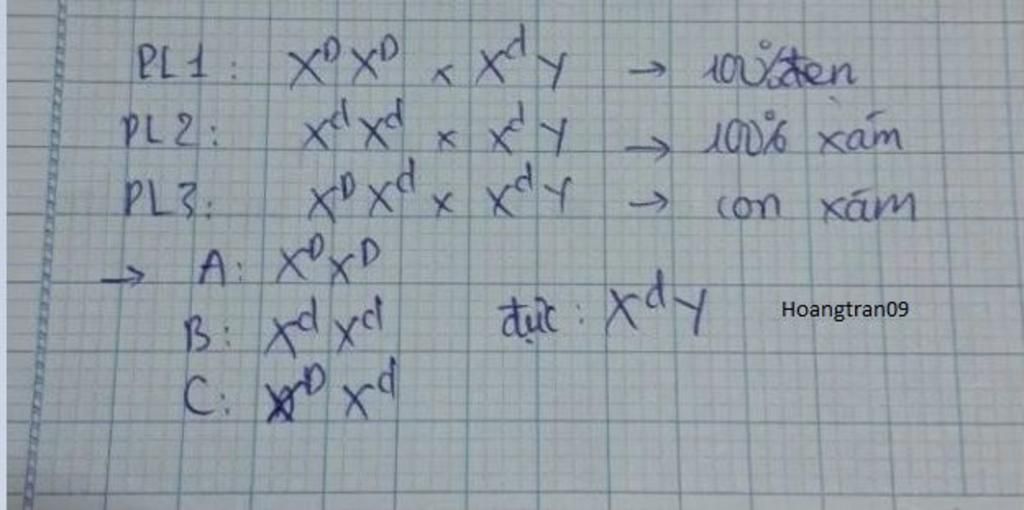 PL1: X^D X^D x X^d Y → 100% đen
PL2: X^d X^d x X^d Y → 100% xám
PL3: X^D X^d x X^d Y → con xám
→ A: X^D X^D
B: X^d X^d đực: X^d Y Hoangtran09
C: X^D X^d